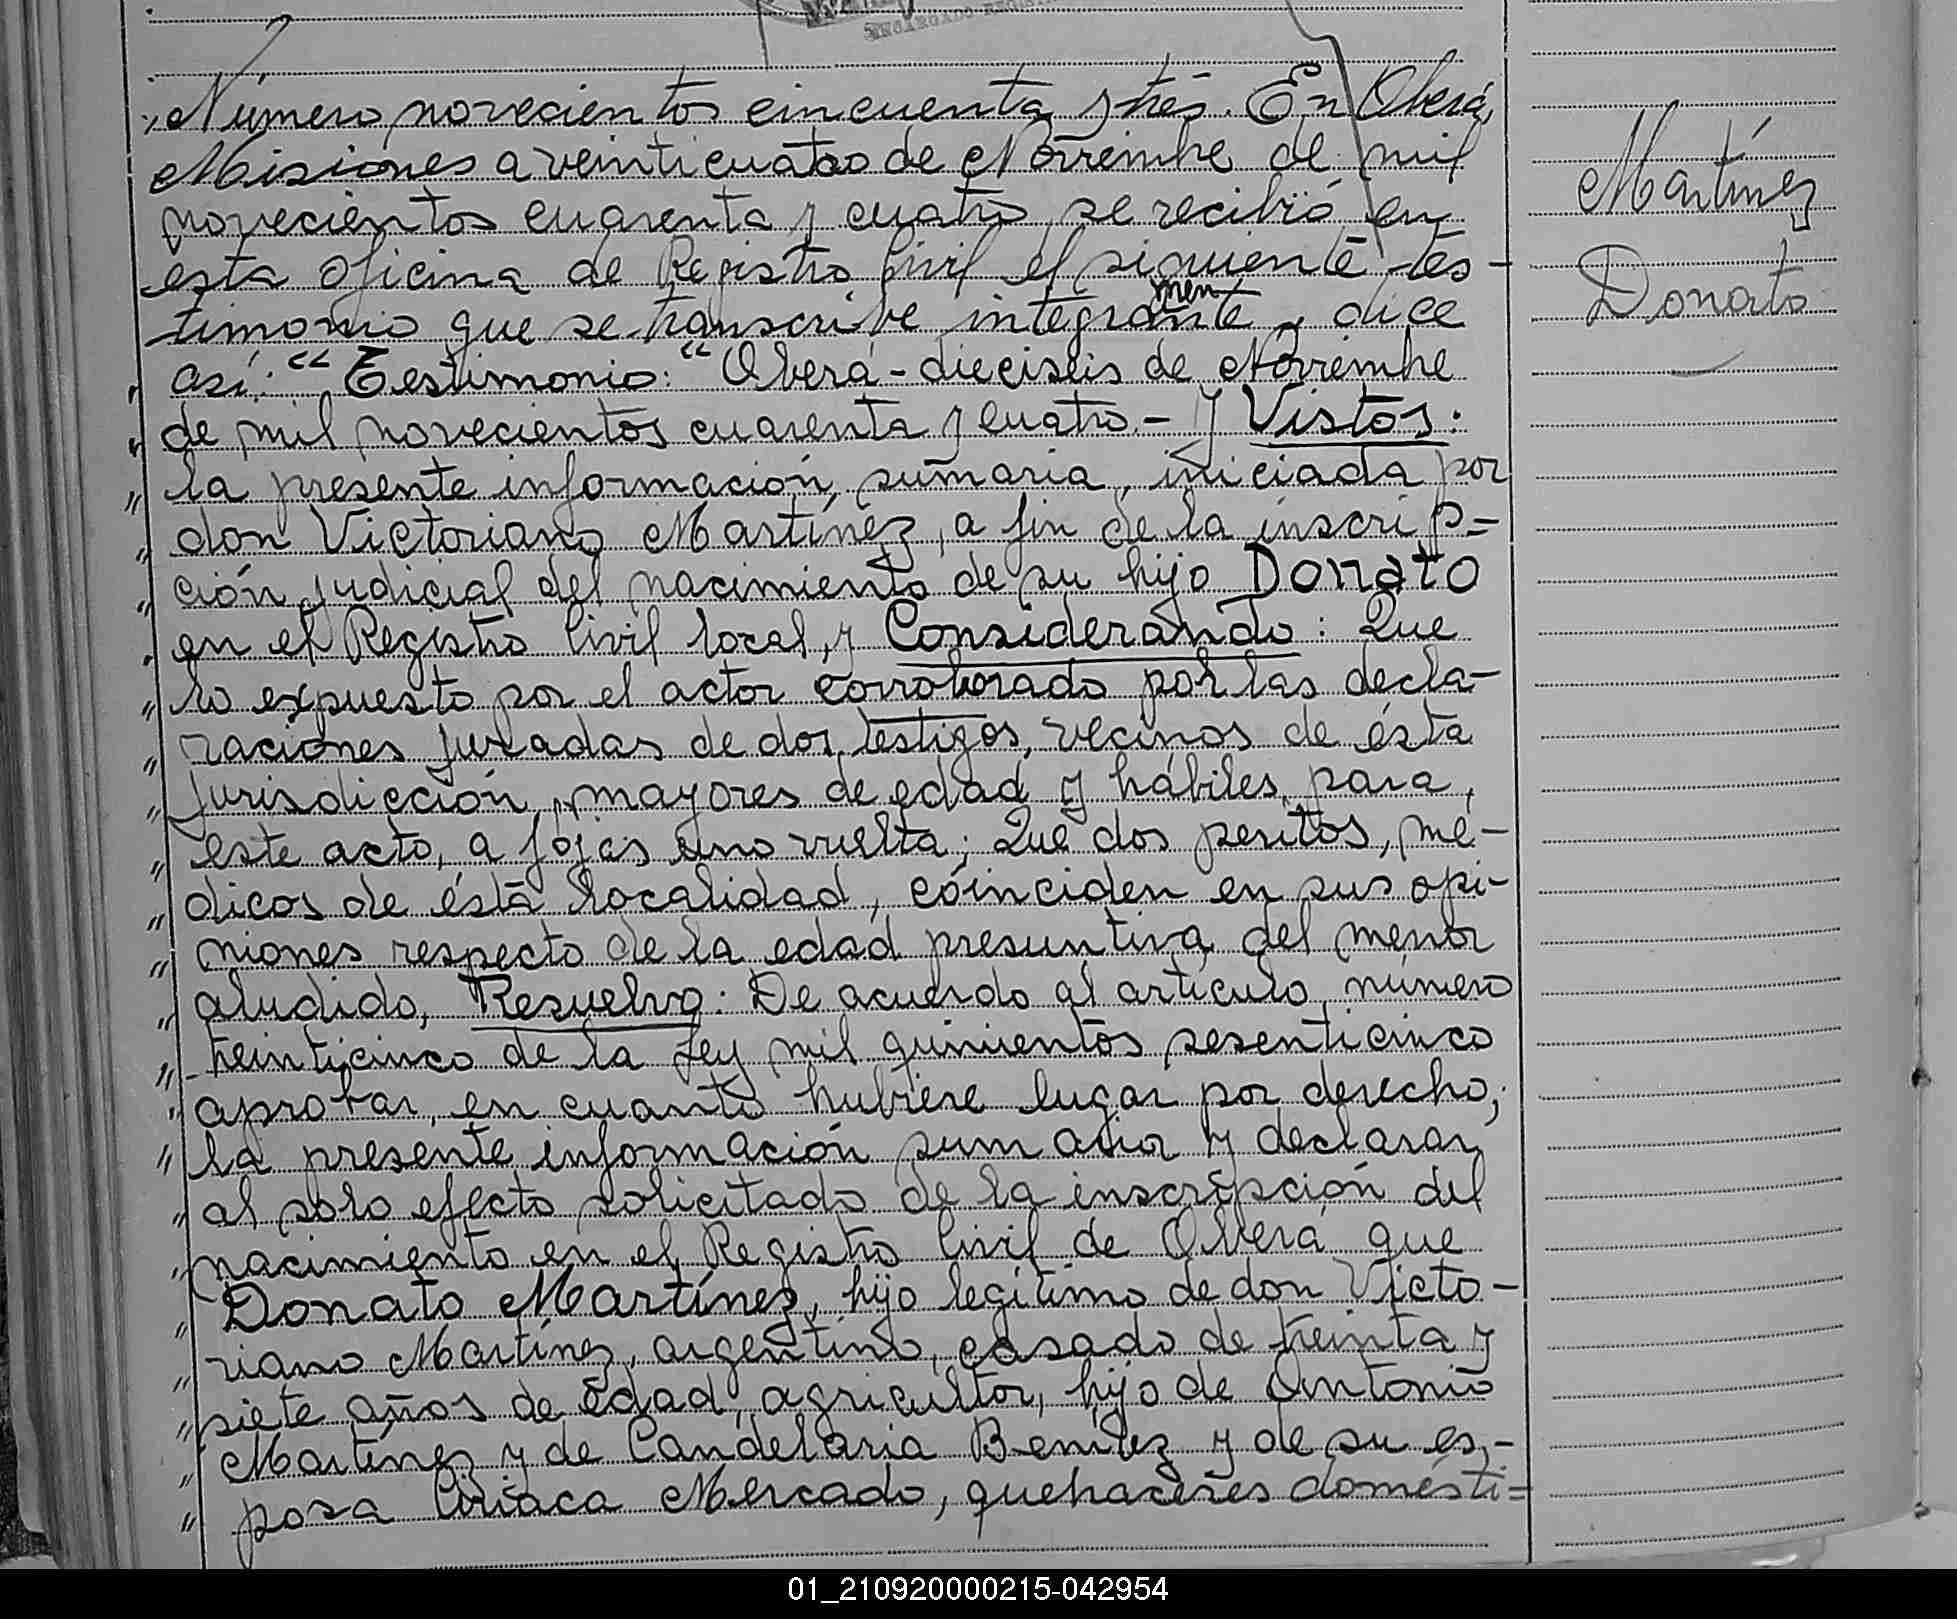 ENCARGADO REGIS
Número novecientos cincuenta y tres. En Oberá,
Misiones a veinticuatro de Noviembre de mil
novecientos cuarenta y cuatro se recibió en
esta oficina de Registro Civil el siguiente tes-
timonio que se transcribe integramente y dice
así: “Testimonio: “Oberá - dieciseis de Noviembre
„ de mil novecientos cuarenta y cuatro.- Y Vistos:
„ la presente información sumaria, iniciada por
„ don Victoriano Martínez, a fin de la inscrip=
„ ción judicial del nacimiento de su hijo Donato
„ en el Registro Civil local, y Considerando: Que
„ lo expuesto por el actor corroborado por las decla-
„ raciones juradas de dos testigos, vecinos de ésta
„ jurisdicción, mayores de edad y hábiles para
„ este acto, a fojas uno vuelta; Que dos peritos, mé-
„ dicos de ésta localidad, coinciden en sus opi-
„ niones respecto de la edad presuntiva del menor
„ aludido, Resuelvo: De acuerdo al artículo número
„ treinticinco de la Ley mil quinientos sesenticinco
„ aprobar, en cuanto hubiere lugar por derecho,
„ la presente información sumaria y declarar
„ al solo efecto solicitado de la inscripción del
„ nacimiento en el Registro Civil de Oberá que
„ Donato Martínez, hijo legítimo de don Victo-
„ riano Martínez, argentino, casado de treinta y
„ siete años de edad, agricultor, hijo de Antonio
„ Martínez y de Candelaria Benítez y de su es-
„ posa Ciriaca Mercado, quehaceres domésti=
Martínez
Donato
01_210920000215-042954